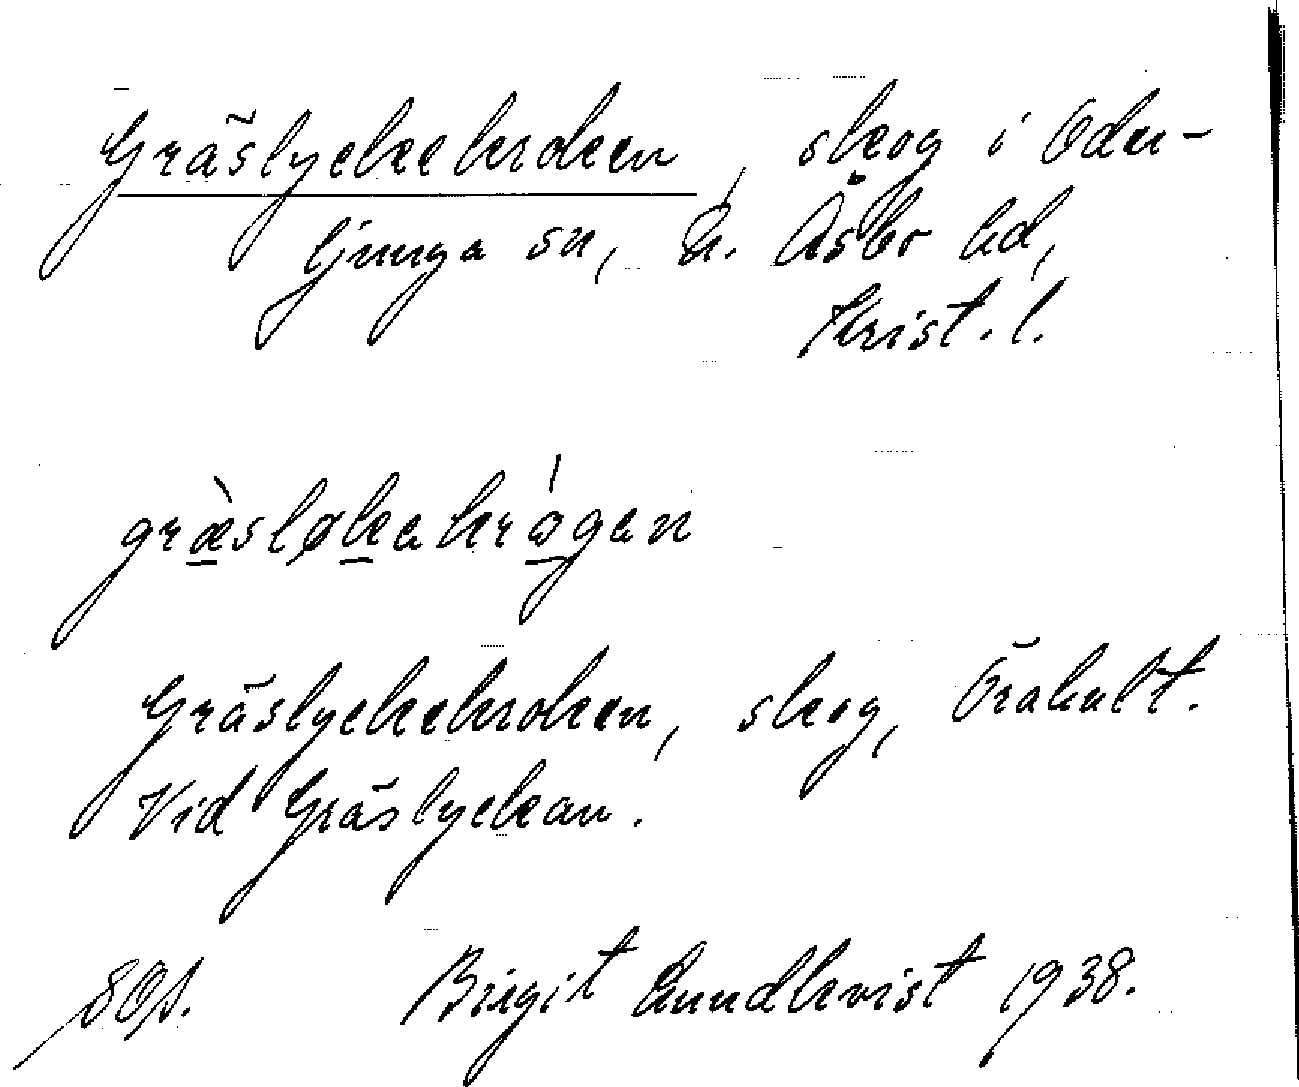 Gräslyckekroken, skog i Oder-
ljunga sn, N. Åsbo hd,
Krist. l.
græ̀sløkakrógan
Gräslyckekroken, skog, Örahult.
Vid Gräslyckan.
Birgit Lundkvist 1938.